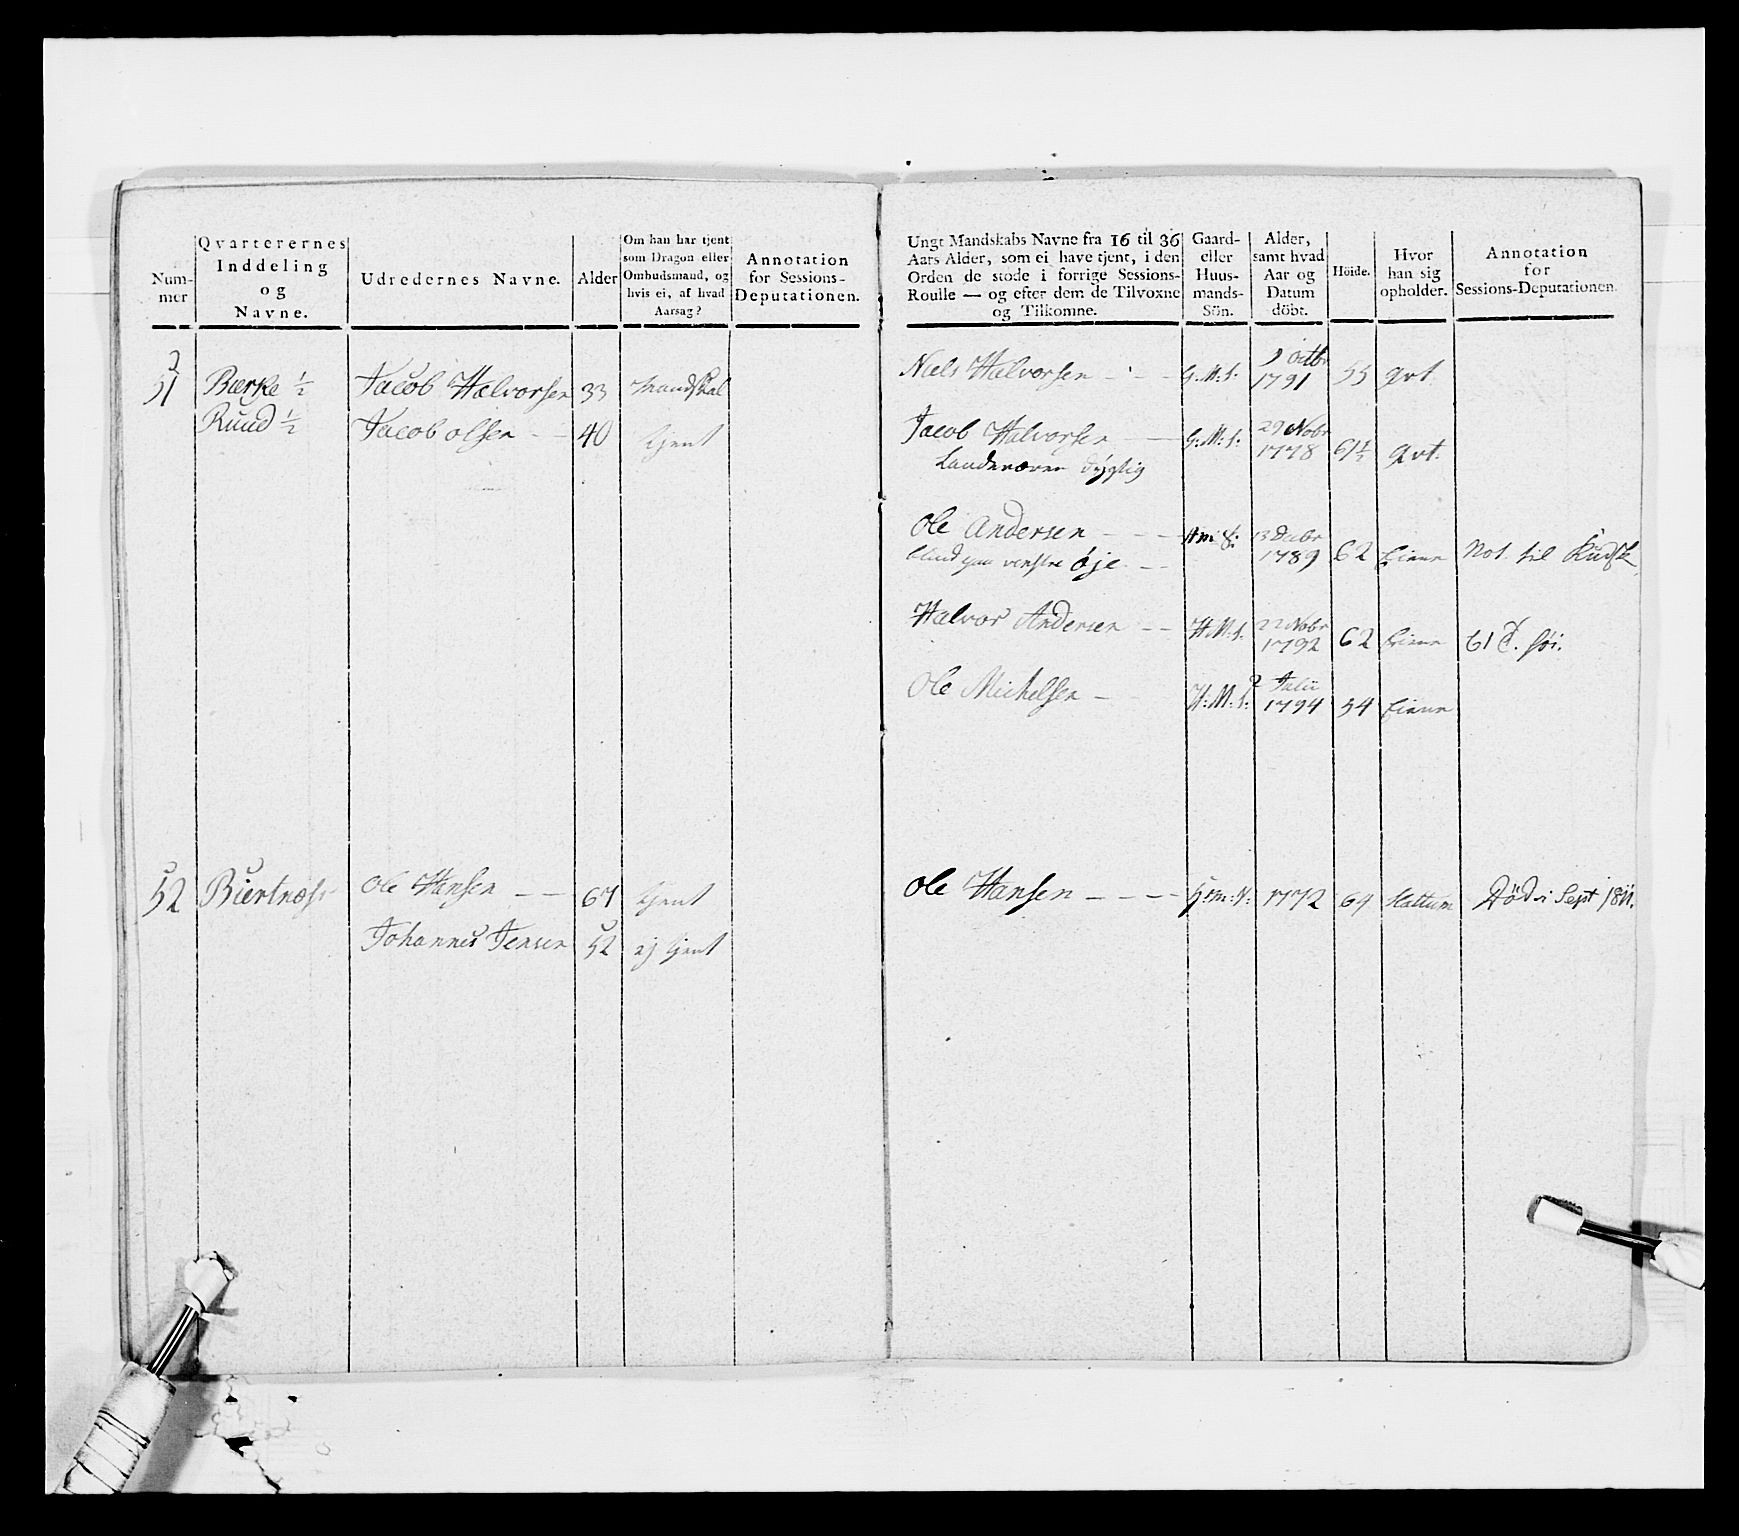 Num-
mer
Qvarterernes
Inddeling
og
Navne.
Udredernes Navne.
Alder
Om han har tjent
som Dragon eller
Ombudsmand, og
hvis ei, af hvad
Aarsag?
Annotation
for Sessions-
Deputationen.
51 Bærke ½ Jacob Halvorsen 33
Ruud ½ Jacob Olsen - - 40 tjent
52 Biertnæss Ole Hansen - - 67 tjent
Johannes Jensen 52 ej tjent
Ungt Mandskabs Navne fra 16 til 36
Aars Alder, som ei have tjent, i den
Orden de stode i forrige Sessions-
Roulle — og efter dem de Tilvoxne
og Tilkomne.
Gaard-
eller
Huus-
mands-
Sön.
Alder,
samt hvad
Aar og
Datum
döbt.
Höide.
Hvor
han sig
opholder.
Annotation
for
Sessions-Deputationen.
Niels Halvorsen - - - G:M:S: 9 Octbr
1791 55 qvt.
Jacob Halvorsen - - G:M:S: 29 Nobr
1778 61½ qvt.
Landeværn dygtig
Ole Andersen - - - Hm:S: 13 Decbr
blind paa venstre øje - - 1789 62 Eiern Not. til Kudsk
Halvor Andersen - - H:M:S: 22 Nobr
1792 62 Eiern 61 T. höi.
Ole Michelsen - H:M:S: 2 Julii
1794 54 Eiern
Ole Hansen - - - - Gm:S: 1772 64 Hattum Död i Sept 1811.